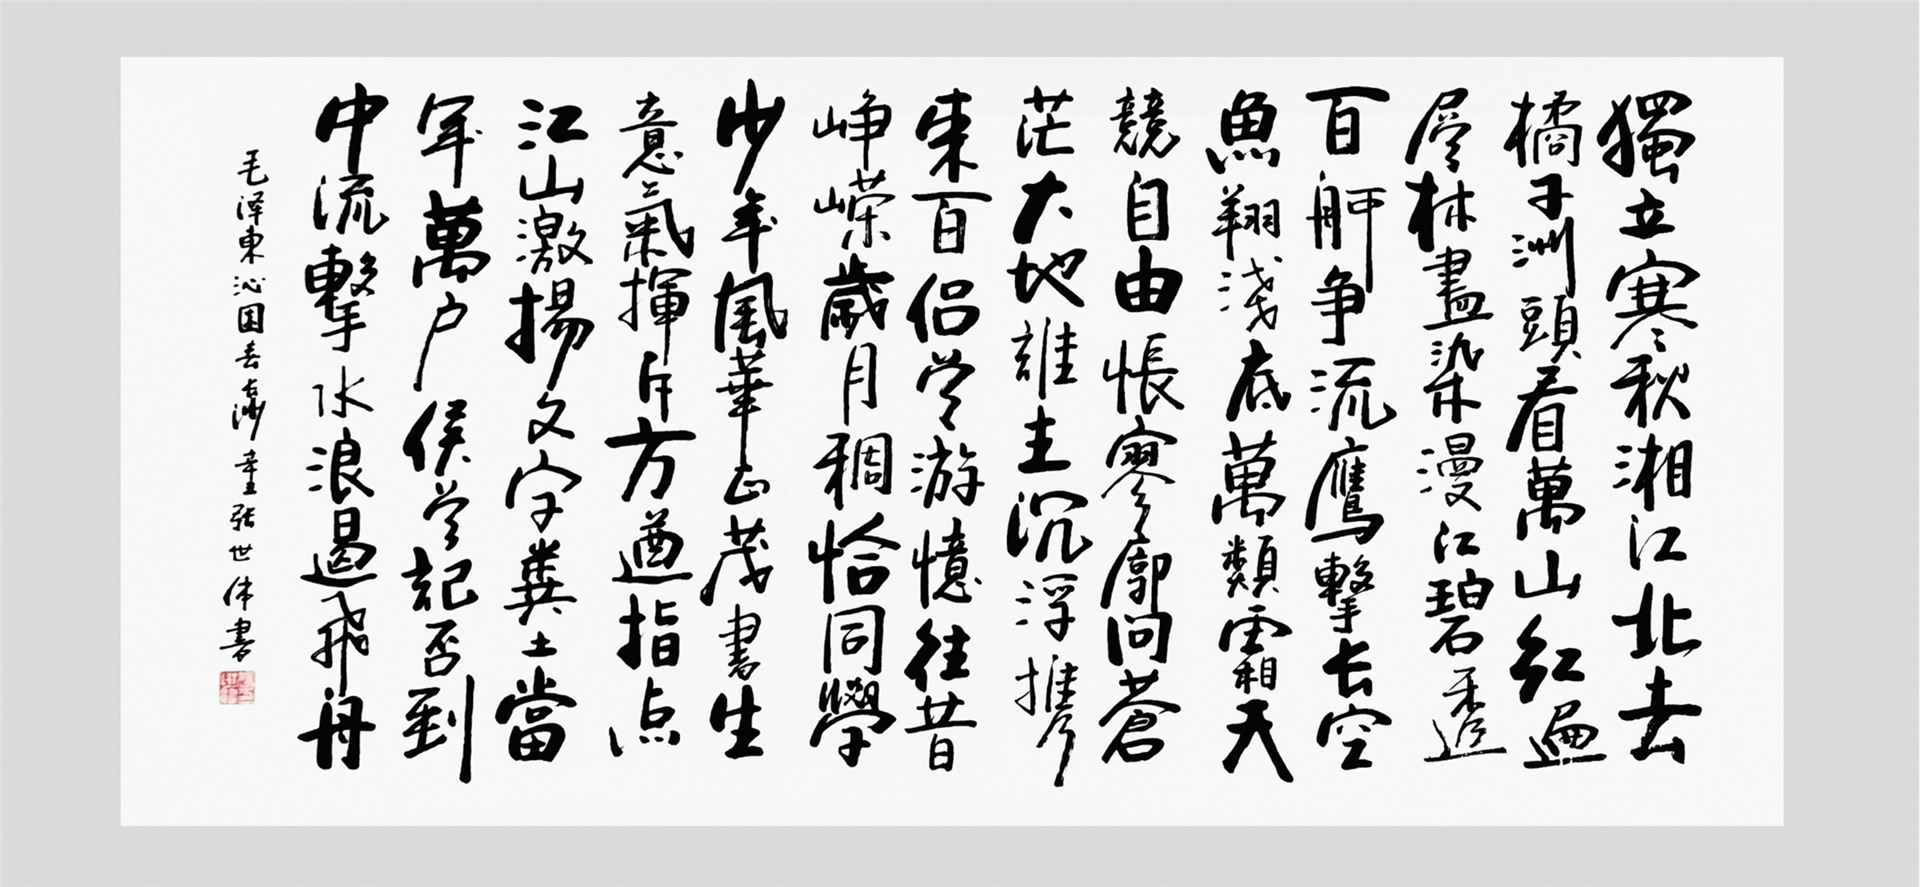 獨立寒秋湘江北去
橘子洲頭看萬山紅遍
层林盡染漫江碧透
百舸争流鷹擊长空
魚翔浅底萬類霜天
競自由悵寥廓問蒼
茫大地誰主沉浮携
来百侣曾游憶往昔
峥嵘歲月稠恰同學
少年風華正茂書生
意氣揮斥方遒指点
江山激揚文字糞土當
年萬户侯曾記否到
中流擊水浪遏飛舟
毛泽東沁园春長沙 张世伟書